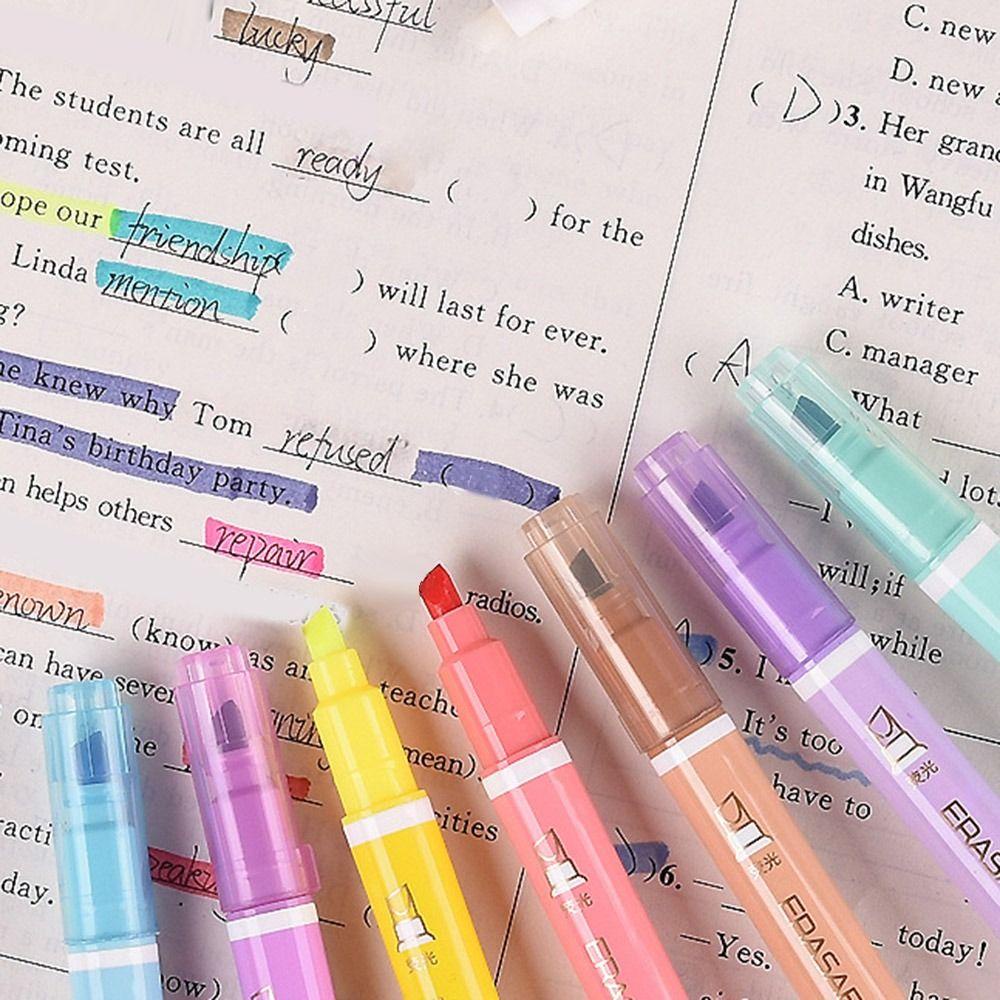 lucky
The students are all ready (
) for the
ming test.
ope our friendship
) will last for ever.
Linda mention (
) where she was
g?
he knew why Tom refused ( )
Tina's birthday party.
n helps others repair
radios.
nown (know) as an
can have seve
teache
on
he
mean).
racti
cities
day.
ow)
C. new
D. new a
( D )3. Her grand
in Wangfu
dishes.
A. writer
C. manager
( A
What
lot
will;if
while
5. I
It's too
have to
6. —
—Yes.
today!
荧光
荧光
荧光
荧光
ERAS
ERASAB
ERA